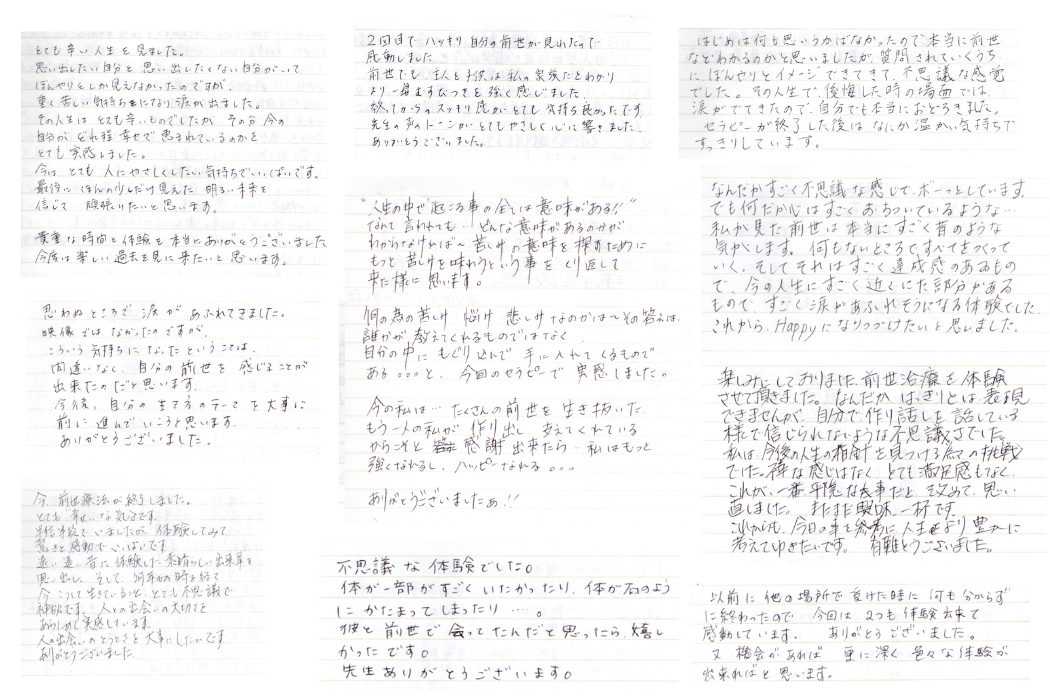 とても辛い人生を見ました。
思い出したい自分と思い出したくない自分がいて
ぼんやりとしか見えなかったのですが、
重く苦しい気持ちになり涙が出ました。
その人生は とても辛いものでしたが その分 今の
自分が どれ程 幸せで恵まれているのかを
とても実感しました。
今は とても 人にやさしくしたい気持ちでいっぱいです。
最後に ほんの少しだけ見えた 明るい未来を
信じて 頑張りたいと思います。
貴重な時間と体験を本当にありがとうございました
今度は楽しい過去を見に来たいと思います。
思わぬところで 涙が あふれてきました。
映像では なかったのですが、
こういう気持ちに なった ということは、
間違いなく、自分の前世を感じることが
出来たのだと思います。
今後、自分の生き方のテーマを大事に
前に進んでいこうと思います。
ありがとうございました。
今、前世療法が終了しました。
とても幸せな気分です。
半信半疑でいましたが、体験してみて
驚きと感動でいっぱいです
遠い遠い昔に体験した素晴らしい出来事を
思い出し、そして、何年もの時を経て
今こうして生きていると、とても不思議で
神秘です。人との出会いの大切さを
あらためて実感しています。
人の出会いのとうとさを大事にしたいです
ありがとうございました
2回目でハッキリ自分の前世が見れたので
感動しました。
前世でも 主人と子供は私の家族だとわかり
より一層むすびつきを強く感じました。
終ってからの、スッキリ感がとても気持ち良かったです
先生の声のトーンがとてもやさしく心に響きました。
ありがとうございました。
"人生の中で起こる事の全ては意味がある!!"
なんて言われても… どんな意味があるのかが
わからなければ〜 苦しみの意味を探すために
もっと苦しみを味わうという事をくり返して
来た様に思います。
何の為の苦しみ・悩み 悲しみなのかは〜その答えは、
誰かが教えてくれるものではなく
自分の中に もぐり込んで 手に入れてくるもので
ある。。。と、今回のセラピーで 実感しました。
今の私は… たくさんの前世を生き抜いた、
もう一人の私が作り出し 支えてくれている
からこそと 感謝出来たら… 私はもっと
強くなれるし、ハッピーになれる。。。
ありがとうございましたぁ!!
不思議な体験でした。
体が一部がすごくいたかったり、体が石のよう
に かたまってしまったり ‥‥。
彼と前世で会ってたんだと思ったら、嬉し
かったです。
先生ありがとうございます。
はじめは何も思いうかばなかったので本当に前世
などわかるのかと思いましたが、質問されていくうち
に、ぼんやりとイメージできてきて、不思議な感覚
でした。その人生で、後悔した時の場面では、
涙がでてきたので、自分でも本当におどろきました。
セラピーが終了した後は、なにか温かい気持ちで
すっきりしています。
なんだかすごく不思議な感じで、ボーっとしています。
でも何だか心はすごくおちついているような…
私が見た前世は本当にすごく昔のような
気がします。何もないところで、すべてをつくって
いく。そしてそれはすごく達成感のあるもの
で、今の人生にすごく近くにた部分がある
もので、すごく涙があふれそうになる体験でした。
これから、Happyになりつづけたいと思いました。
楽しみにしておりました前世治療を体験
させて頂きました。なんだか はっきりとは表現
できませんが、自分で作り話しを話している
様で信じられないような不思議さでした。
私は、今後の人生の指針を見つける為の挑戦
でした。様な感じはなく、とても満足感もなく、
これが、一番平穏な出来事だと改めて、思い
直しました。まだまだ興味一杯です。
これからも、今日の事を参考に人生をより豊かに
考えてゆきたいです。有難とうございました。
以前に他の場所で受けた時に何も分からず
に終わったので 今回は 2つも体験出来て
感動しています。ありがとうございました。
又 機会があれば、更に深く 色々な体験が
出来ればと思います。